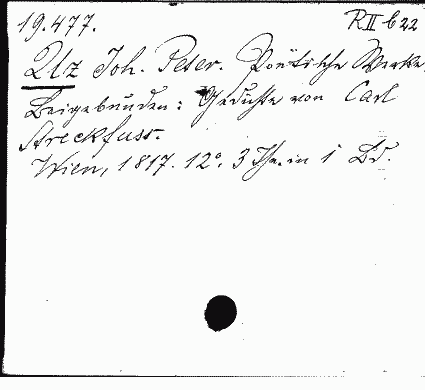 19.477. R II b 22
Uz Joh. Peter. Poëtische Werke.
Beigebunden: Gedichte von Carl
Streckfuss.
Wien, 1817. 12°. 3 The. in 1 Bd.